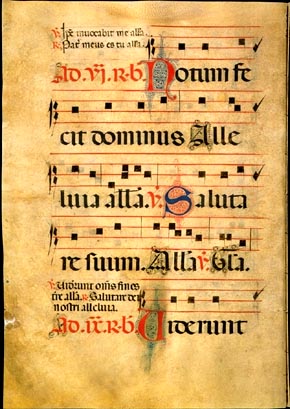 ℣. Ipse invocabit me alla.
℟. Pater meus es tu alla.
Ad. VJ. R.b. Notum fe
cit dominus Alle
luia alla. ℣. Saluta
re suum. Alla ℣. Gla.
℣. Viderunt omnes fines
tre alla. ℟. Salutare dei
nostri alleluia.
Ad. IX. R.b. Viderunt